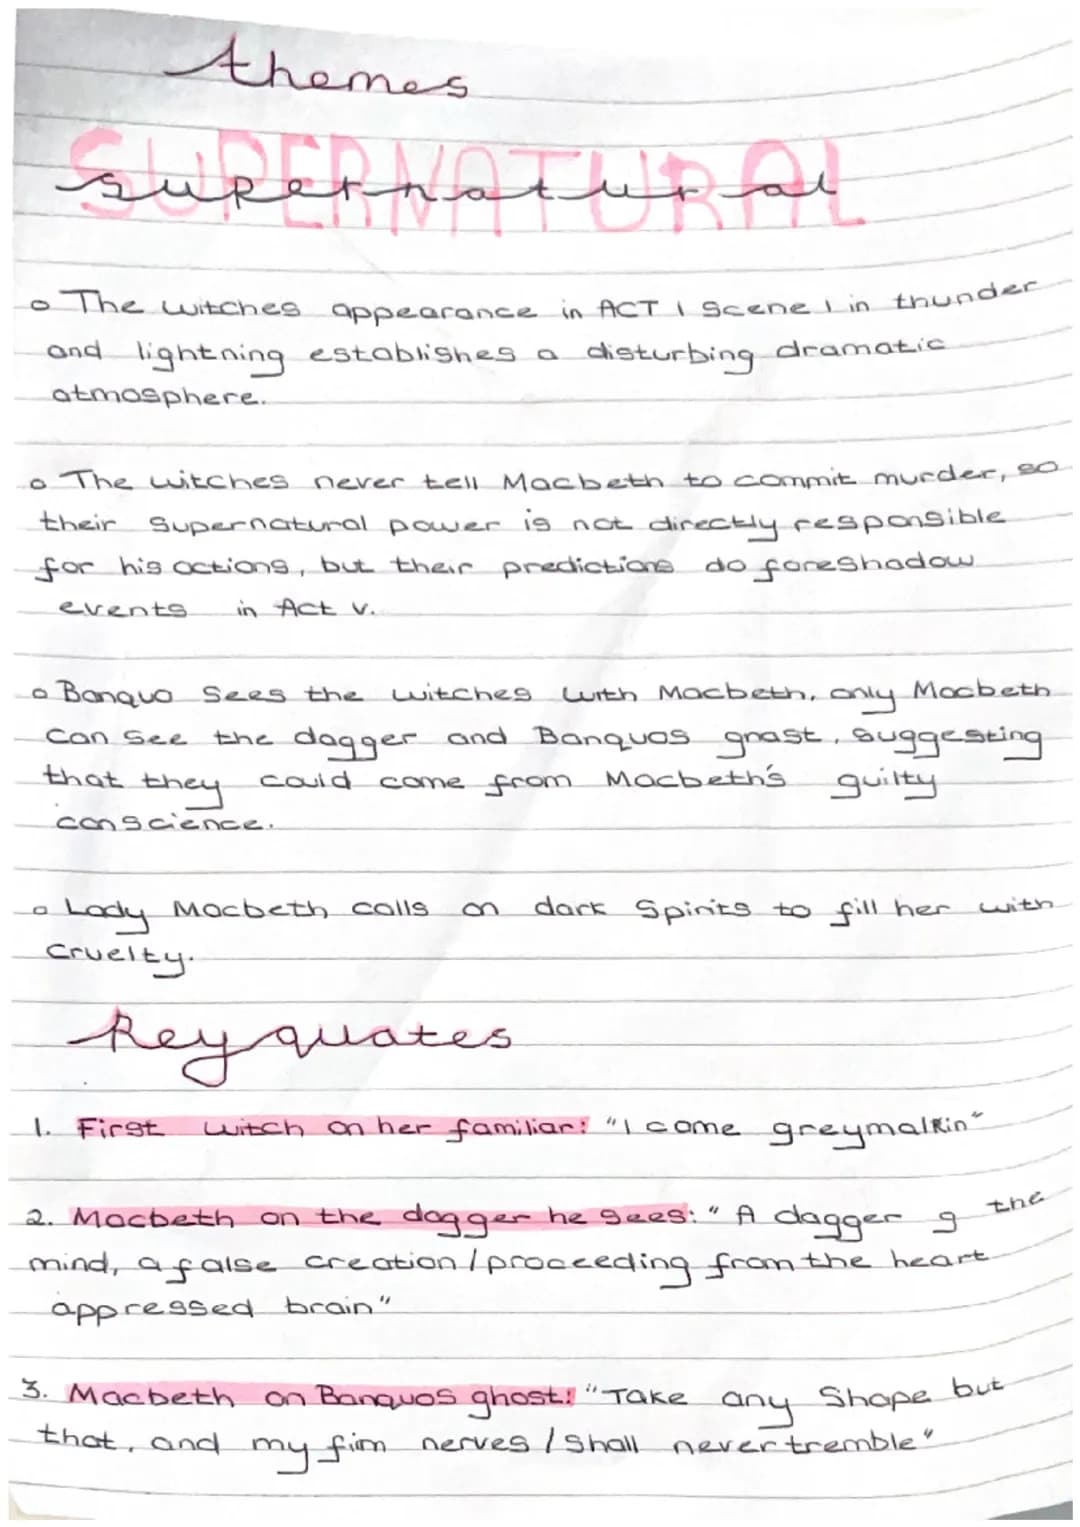 themes
SUPERNATURAL
supernatural
The witches appearance in ACT 1 Scene 1 in thunder
and lightning establishes a disturbing dramatic
atmosphere.
The witches never tell Macbeth to commit murder, so
their supernatural power is not directly responsible
for his actions, but their predictions do foreshadow
events in Act V.
Banquo sees the witches with Macbeth, only Macbeth
can see the dagger and Banquos ghost, suggesting
that they could come from Macbeth's guilty
conscience.
Lady Macbeth calls on dark spirits to fill her with
cruelty.
Key quotes
1. First witch on her familiar: "I come greymalkin"
2. Macbeth on the dagger he sees: "A dagger of the
mind, a false creation / proceeding from the heart
oppressed brain"
3. Macbeth on Banquos ghost: "Take any shape but
that, and my firm nerves / Shall never tremble"